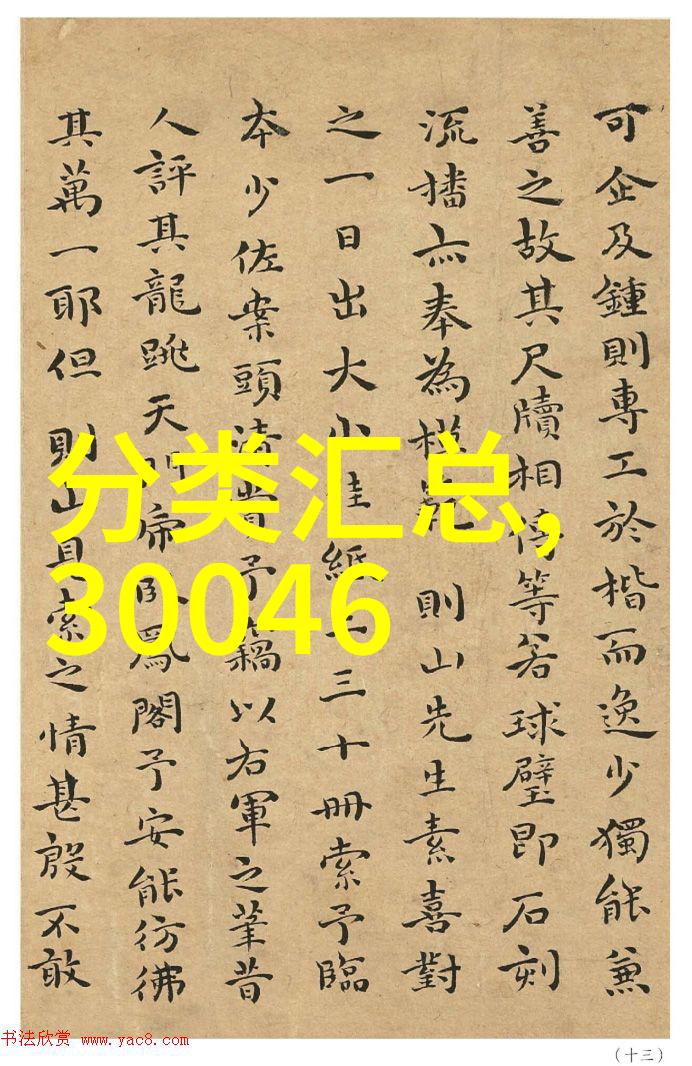 可企及鍾則專工於楷而逸少獨能兼
善之故其尺牘相傳等若球璧即石刻
流播亦奉為模 則山先生素喜對
之一日出大小佳紙二三十冊索予臨
本少佐案頭清賞予竊以右軍之筆昔
人評其龍跳天門帝臥鳳閣予安能彷彿
其萬一耶但 則山具索之情甚殷不敢
分类汇总,
30046
书法欣赏 www.yac8.com
(十三)